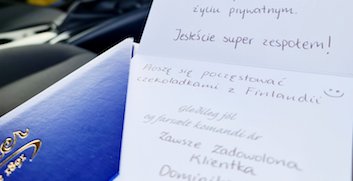 życiu prywatnym.
Jesteście super zespołem!
Proszę się poczęstować
czekoladkami z Finlandii
Gleðileg jól
og farsælt komandi ár
Zawsze Zadowolona
Klientka